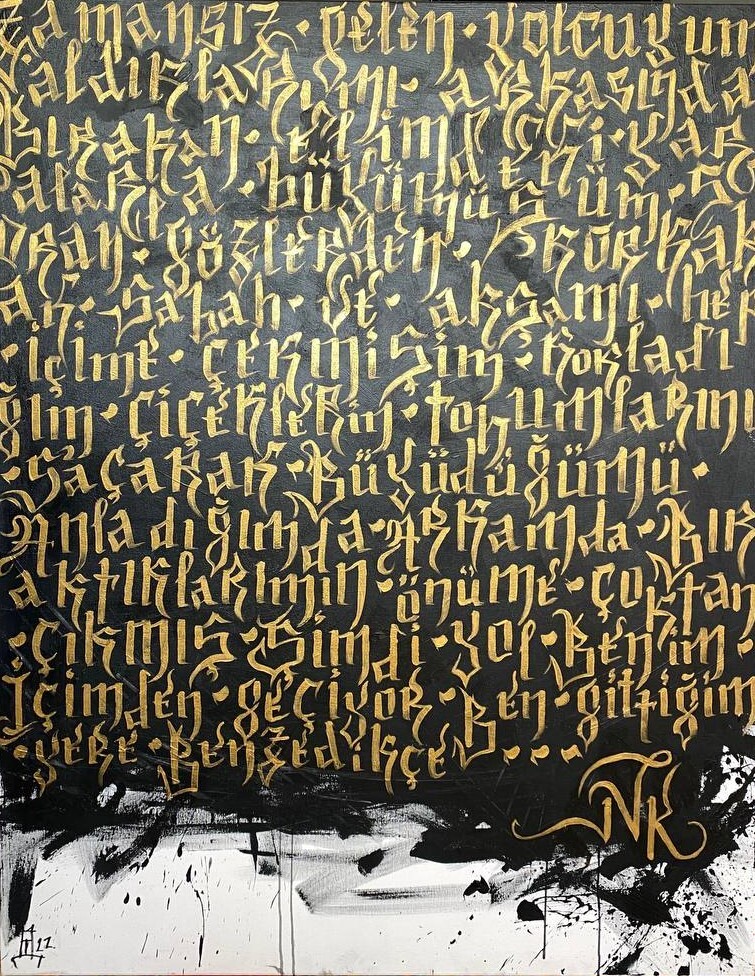 Zamansız · gelen · yolcuğun
· aldıklarımı · arkasında
Bırakan · Elimden · çıkar
alarla · büyümüşüm · s
oran · gözlerden · Korkar
ak · Sabah · ve · akşamı · hep
· içime · çekmişim · Kokladı
ğım · çiçeklerin · tohumlarını
· Saçarak · Büyüdüğümü ·
Anladığımda · Arkamda · Bır
aktıklarımın · önüme · çoktan
· çıkmış · Şimdi · yol · Benim ·
İçimden · geçiyor · Ben · gittiğim
· yere · Benzedikçe...
NK
22